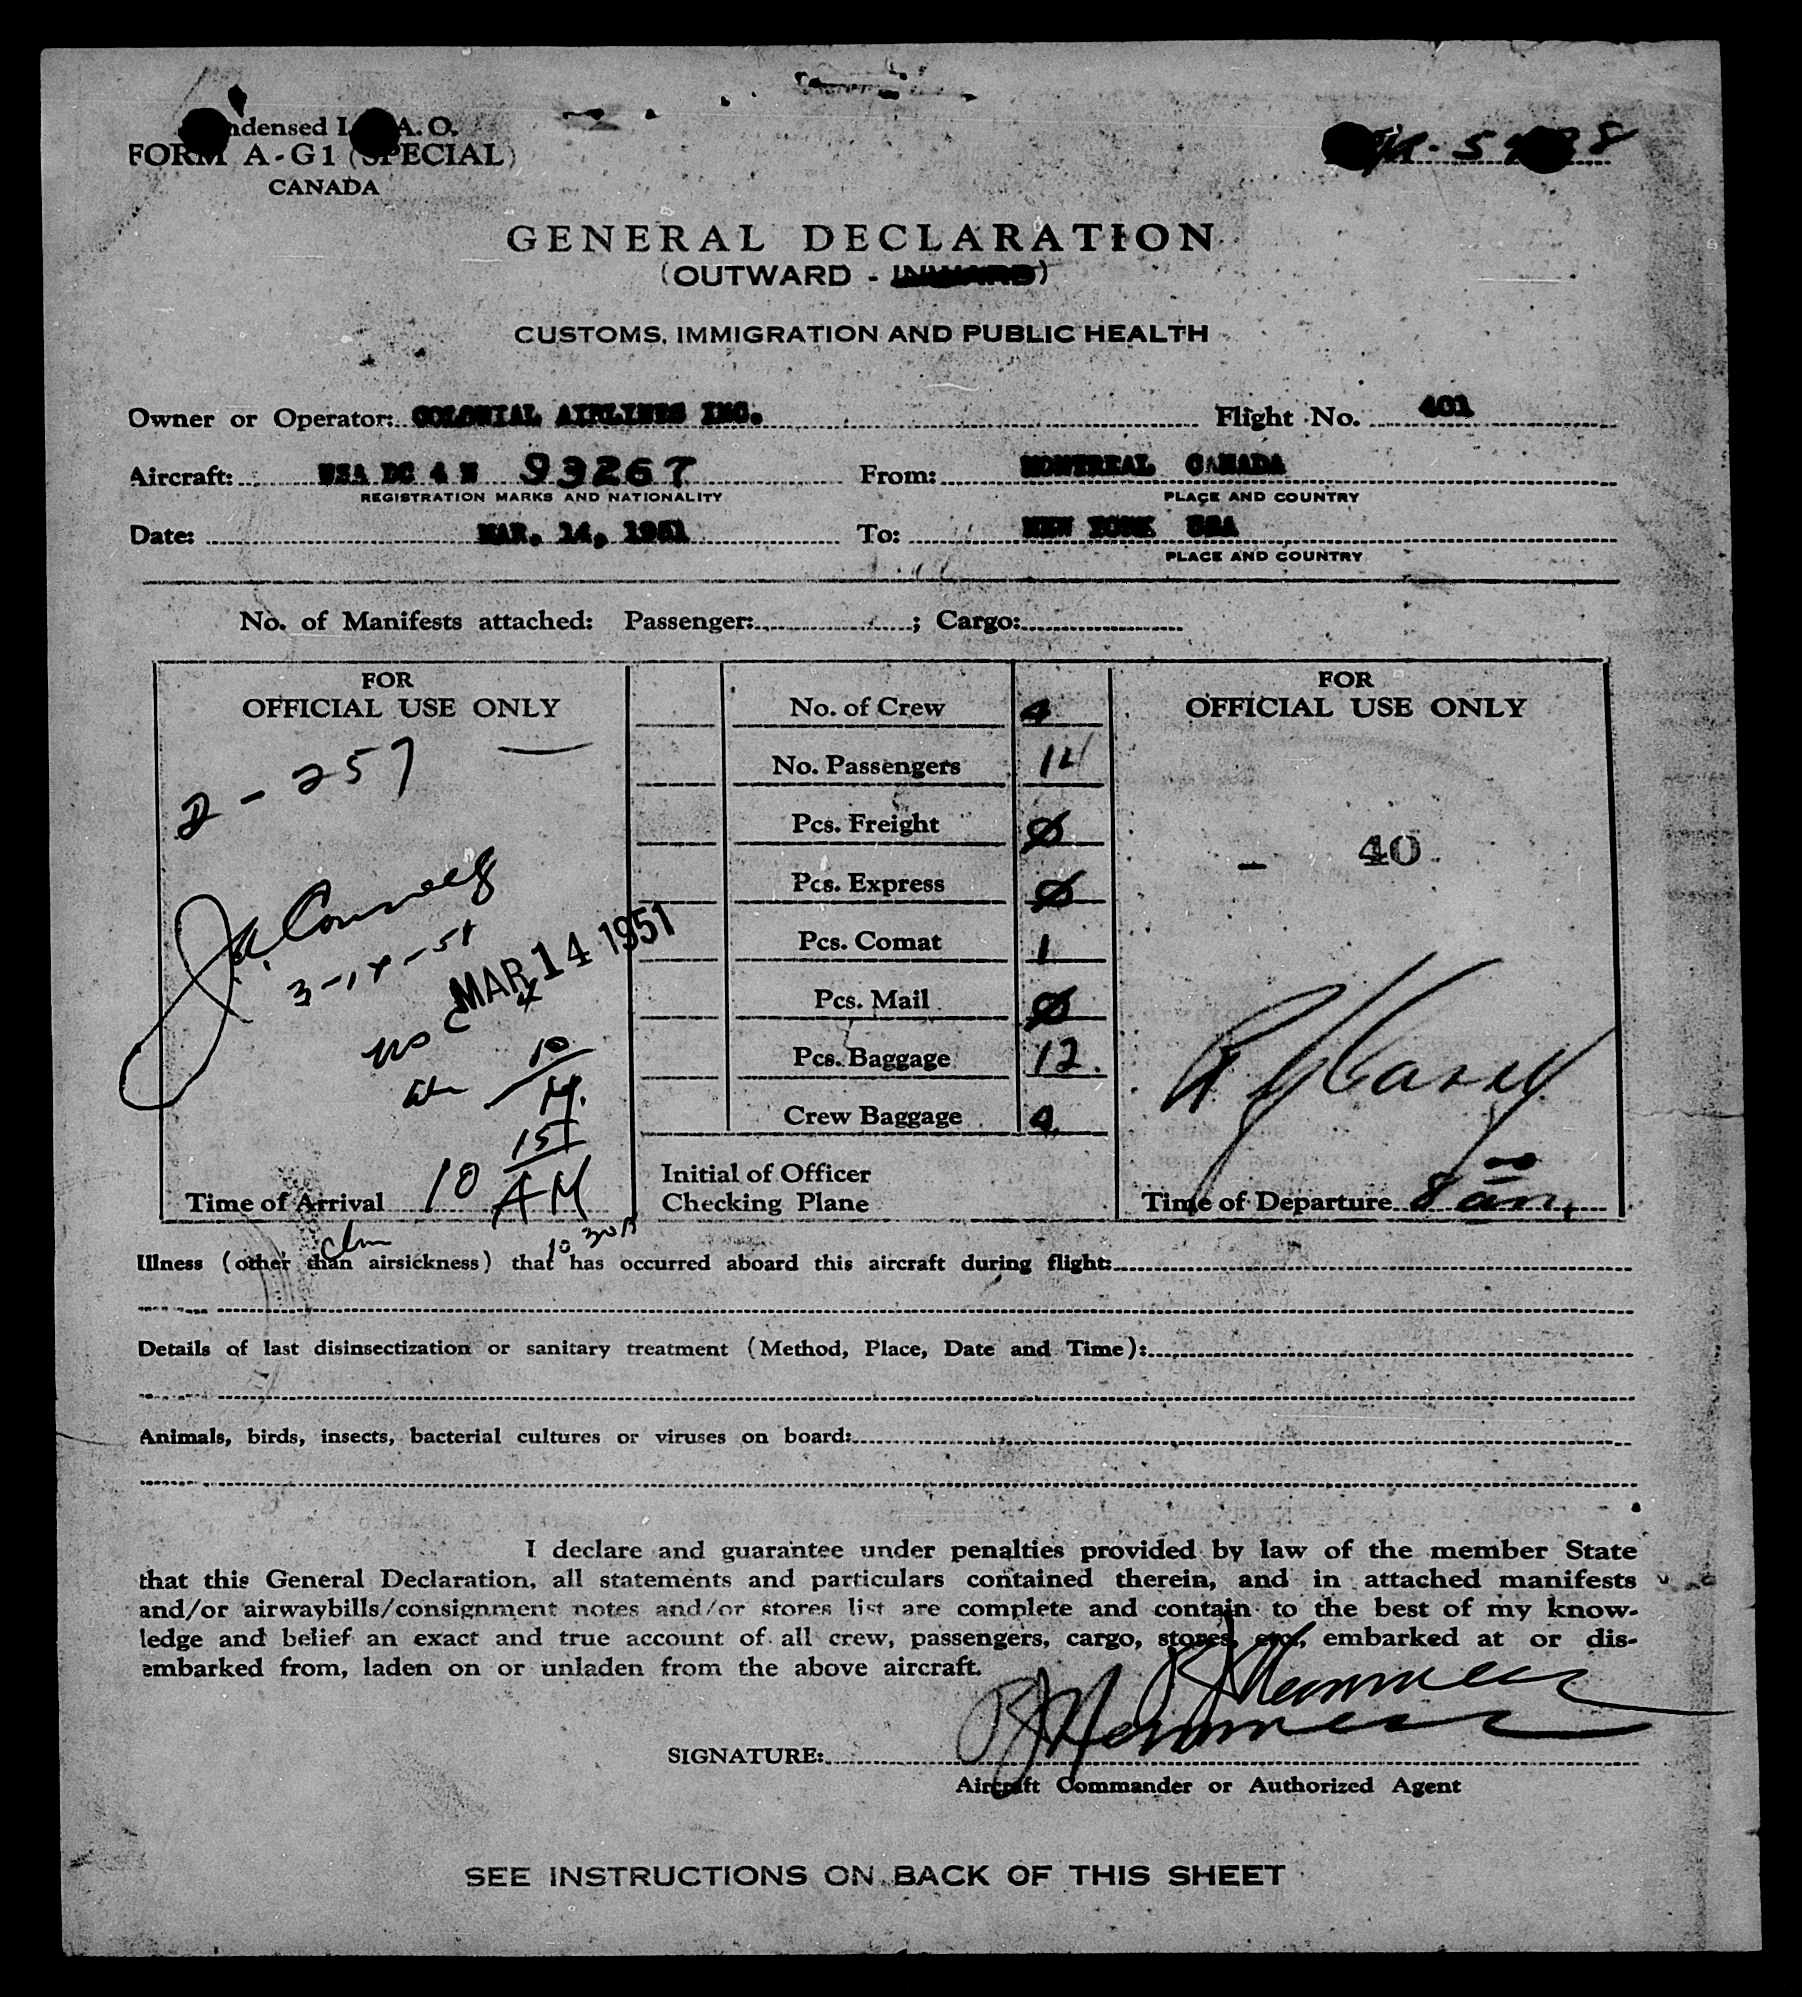 Condensed I.C.A.O.
FORM A-G1 (SPECIAL)
CANADA
GENERAL DECLARATION
(OUTWARD - INWARD)
CUSTOMS, IMMIGRATION AND PUBLIC HEALTH
Owner or Operator: COLONIAL AIRLINES INC. Flight No. 401
Aircraft: USA DC 4 N 93267 From: MONTREAL CANADA
REGISTRATION MARKS AND NATIONALITY PLACE AND COUNTRY
Date: MAR. 14, 1951 To: NEW YORK USA
PLACE AND COUNTRY
No. of Manifests attached: Passenger: ; Cargo:
FOR
OFFICIAL USE ONLY
2-257
MAR 14 1951
10
15
Time of Arrival 10 AM
No. of Crew 4
No. Passengers 14
Pcs. Freight Ø
Pcs. Express Ø
Pcs. Comat 1
Pcs. Mail Ø
Pcs. Baggage 12.
Crew Baggage 4
Initial of Officer
Checking Plane
FOR
OFFICIAL USE ONLY
- 40
Time of Departure 8 am
Illness (other than airsickness) that has occurred aboard this aircraft during flight:
Details of last disinsectization or sanitary treatment (Method, Place, Date and Time):
Animals, birds, insects, bacterial cultures or viruses on board:
I declare and guarantee under penalties provided by law of the member State
that this General Declaration, all statements and particulars contained therein, and in attached manifests
and/or airwaybills/consignment notes and/or stores list are complete and contain to the best of my know-
ledge and belief an exact and true account of all crew, passengers, cargo, stores, etc., embarked at or dis-
embarked from, laden on or unladen from the above aircraft.
SIGNATURE:
Aircraft Commander or Authorized Agent
SEE INSTRUCTIONS ON BACK OF THIS SHEET